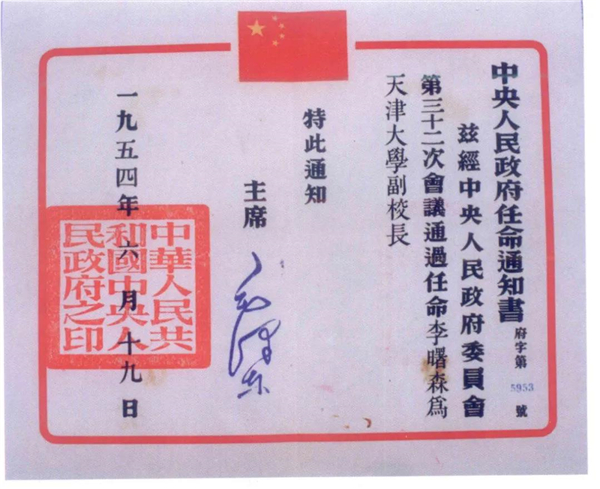 中央人民政府任命通知書
府字第5953號
茲經中央人民政府委員會
第三十二次會議通過任命李曙森爲
天津大學副校長
特此通知
主席
毛澤东
一九五四年六月十九日
中華人民共
和國中央人
民政府之印